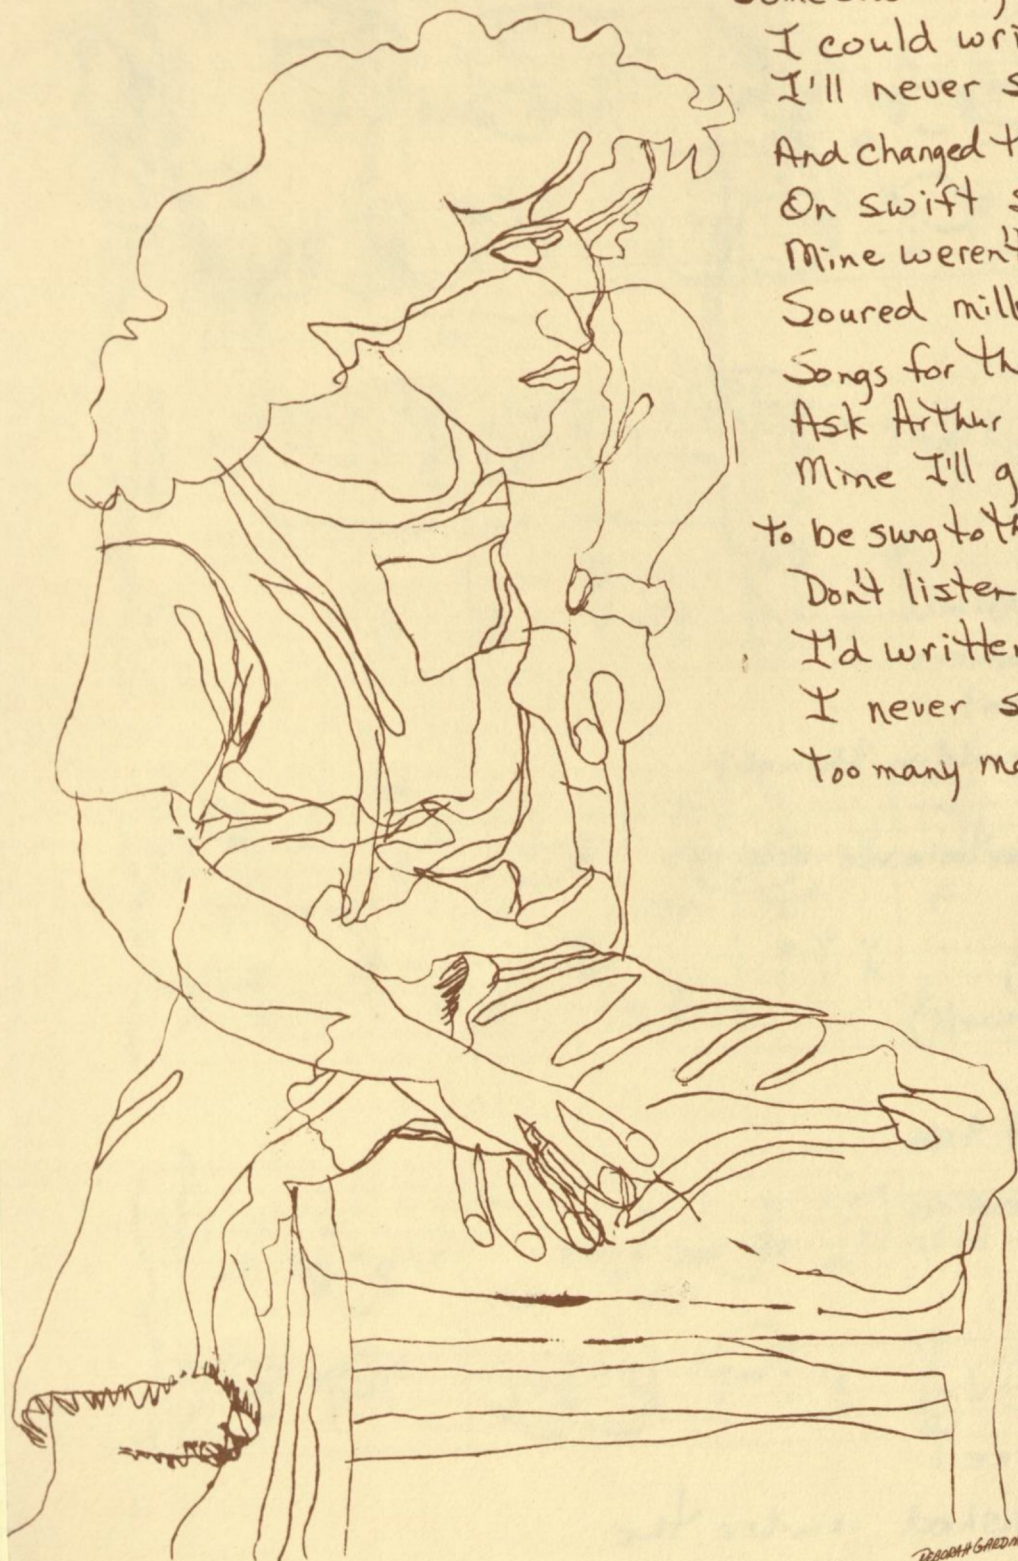 I could wri
I'll never s
And changed t
On swift s
Mine weren't
Soured milk
Songs for th
Ask Arthur
Mine I'll g
to be sung to th
Don't listen
I'd written
I never s
too many mo
DEBORAH GARDN